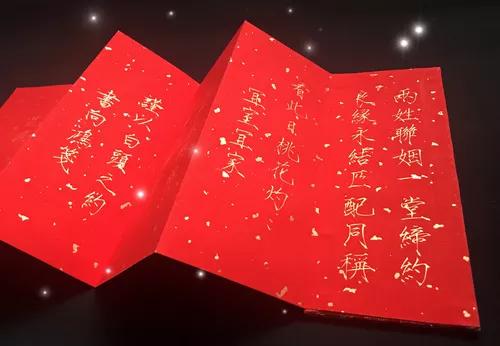 兩姓聯姻一堂締約
良緣永結匹配同稱
看此日桃花灼灼
宜室宜家
謹以白頭之約
書向鴻箋